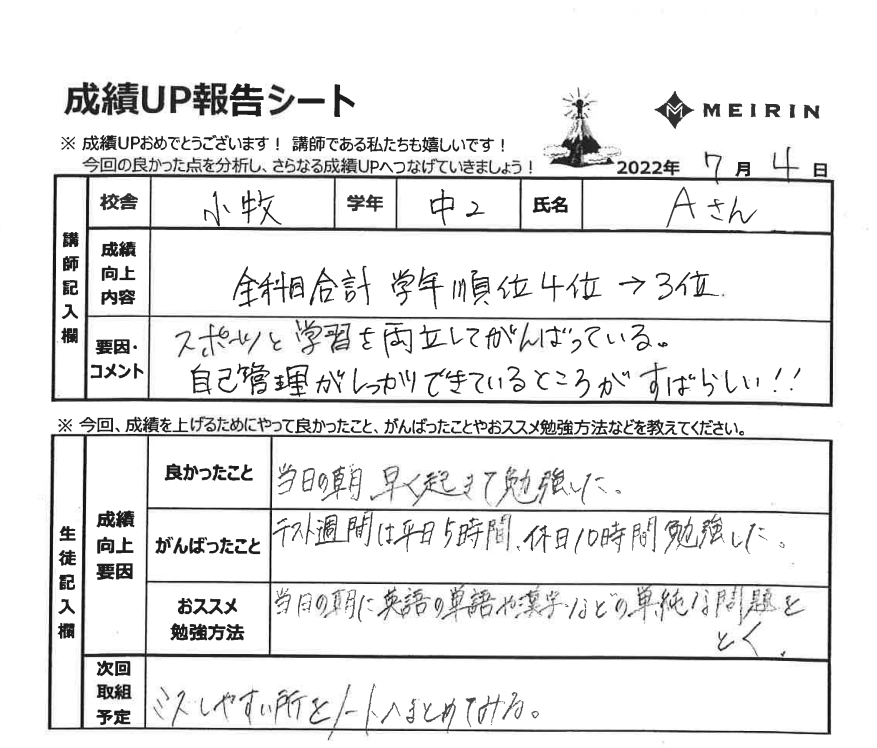 成績UP報告シート
MEIRIN
※ 成績UPおめでとうございます！ 講師である私たちも嬉しいです！
今回の良かった点を分析し、さらなる成績UPへつなげていきましょう！
2022年 7月 4日
講師記入欄
校舎 小牧 学年 中2 氏名 Aさん
成績向上内容 全科目合計 学年順位4位→3位
要因・コメント スポーツと学習を両立してがんばっている。
自己管理がしっかりできているところがすばらしい!!
※ 今回、成績を上げるためにやって良かったこと、がんばったことやおススメ勉強方法などを教えてください。
生徒記入欄
成績向上要因
良かったこと 当日の朝早く起きて勉強した。
がんばったこと テスト週間は平日5時間、休日10時間勉強した。
おススメ勉強方法 当日の朝に英語の単語や漢字などの単純な問題を
とく。
次回取組予定 ミスしやすい所をノートへまとめてみる。